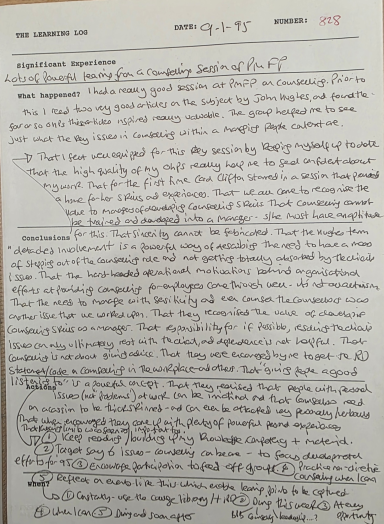 THE LEARNING LOG DATE: 9-1-95 NUMBER: 828
Significant Experience
Lots of powerful learning from a Counselling Session at PMFP
What happened? I had a really good session at PMFP on Counselling. Prior to
this I read two very good articles on the subject by John Hughes, and found the
four or so OHPs these articles inspired really valuable. The group helped me to see
just what the key issues in Counselling within a managing people context are.
→ That I felt well equipped for this key session by keeping myself up to date
That the high quality of my OHPs really help me to feel confident about
my work. That for the first time Clifton shared in a session that provided
a home for her skills and experiences. That we all came to recognise the
value to managers of developing Counselling skills. That Counselling cannot
be trained and developed into a manager - s/he must have an aptitude
Conclusions for this. That sincerity cannot be fabricated. That the Hughes term
"detached involvement" is a powerful way of describing the need to have a mode
of stepping out of the counselling role and not getting totally absorbed by the clients
issue. That the hard-headed operational motivations behind organisational
efforts at providing counselling for employees came through well - its not altruism.
That the need to manage with sensitivity and even counsel the counsellors was
another issue that we worked upon. That they recognised the value of developing
Counselling skills as a manager. That responsibility for, if possible, resolving the clients
issues can only ultimately rest with the client, and dependence is not helpful. That
Counselling is not about giving advice. That they were encouraged by me to get the RD
Statement/code on Counselling in the workplace and others. That "giving people a good
listening to" is a powerful concept. That they realised that people with personal
Actions issues (not problems) at work can be inhibited and that Counsellors need
on occasion to be thick skinned - and can even be attacked very personally/verbally
That when encouraged they come up with plenty of powerful personal experiences
① Keep reading/building up my knowledge, competency + material.
② Target say 6 issues - counselling can be one - to focus developmental
efforts for 95 ③ Encourage participation to feed off groups ④ Practice non-directive
When? counselling when I can
⑤ Reflect on events like this which enable the learning points to be captured
① Constantly - use the College library/ + HRD ② During this week ③ At every
④ When I can ⑤ During and soon after opportunity